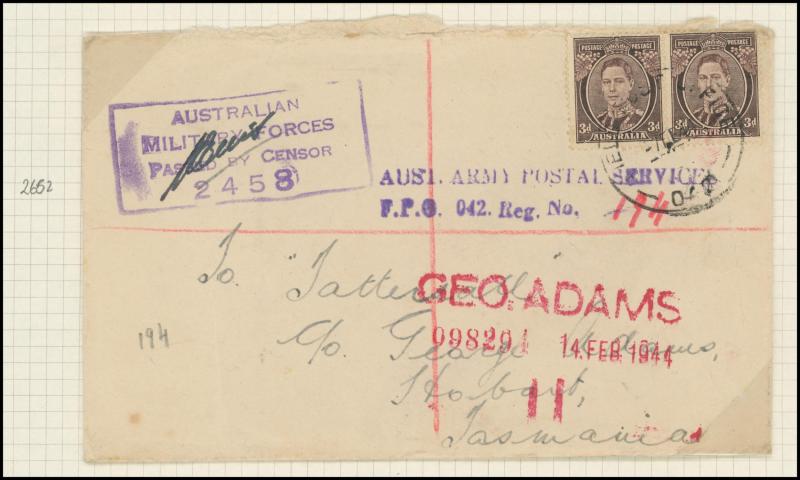 POSTAGE POSTAGE
3d 3d
AUSTRALIA
POSTAGE
3d 3d
AUSTRALIA
AUSTRALIAN
MILITARY FORCES
PASSED BY CENSOR
2458
2652
AUST. ARMY POSTAL SERVICE
F.P.O. 042. Reg. No. 194
042
To "Tattersalls"
GEO. ADAMS
c/o George Adams,
098291 14 FEB 1944
194
Hobart,
11
Tasmania